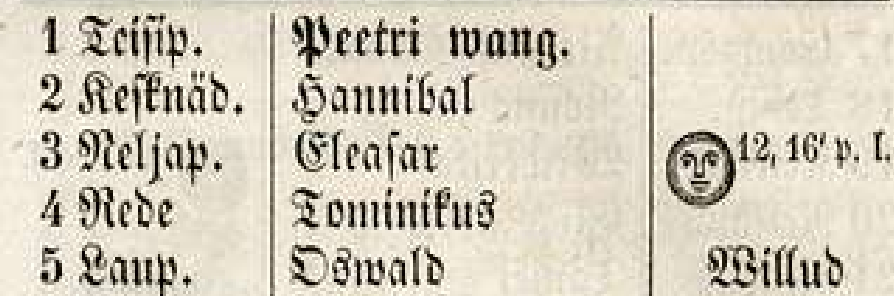 1 Teisip. Peetri wang.
2 Kesknäd. Hannibal
3 Neljap. Eleasar 12, 16' p. l.
4 Rede Tominikus
5 Laup. Oswald Willud